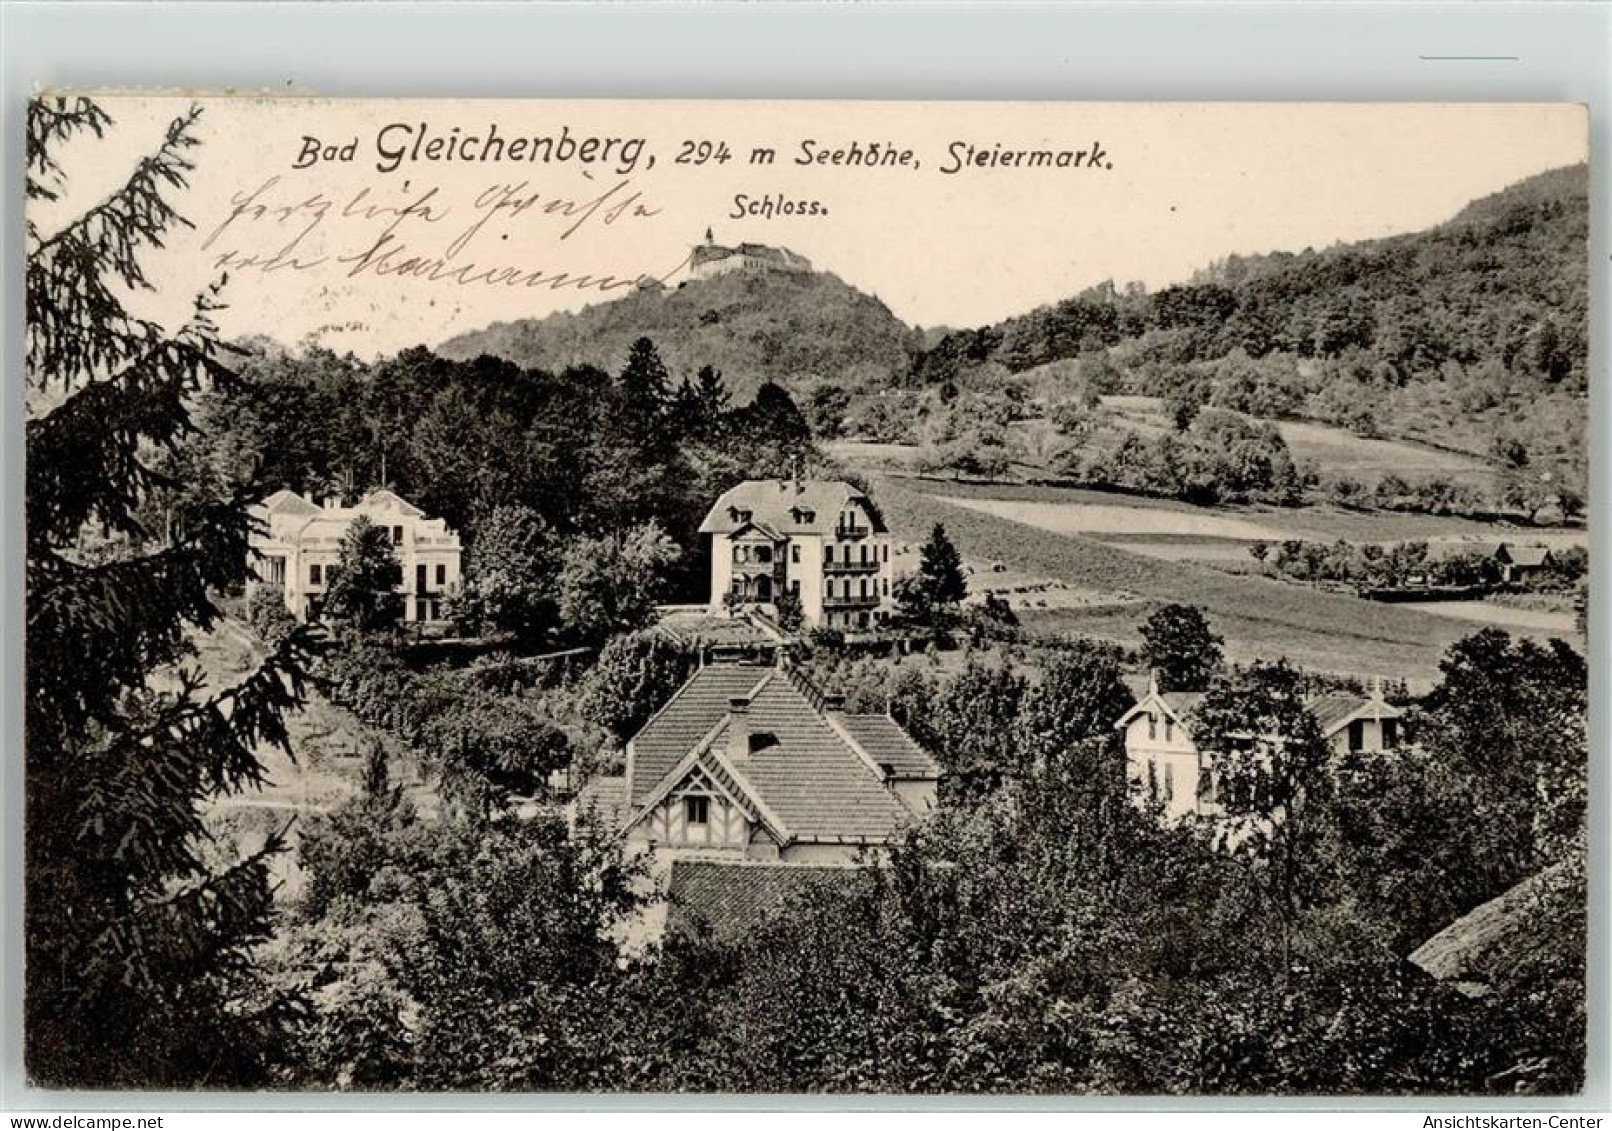 Bad Gleichenberg, 294 m Seehöhe, Steiermark.
Schloss.
Herzliche Grüsse
von Marianne
Ansichtskarten-Center